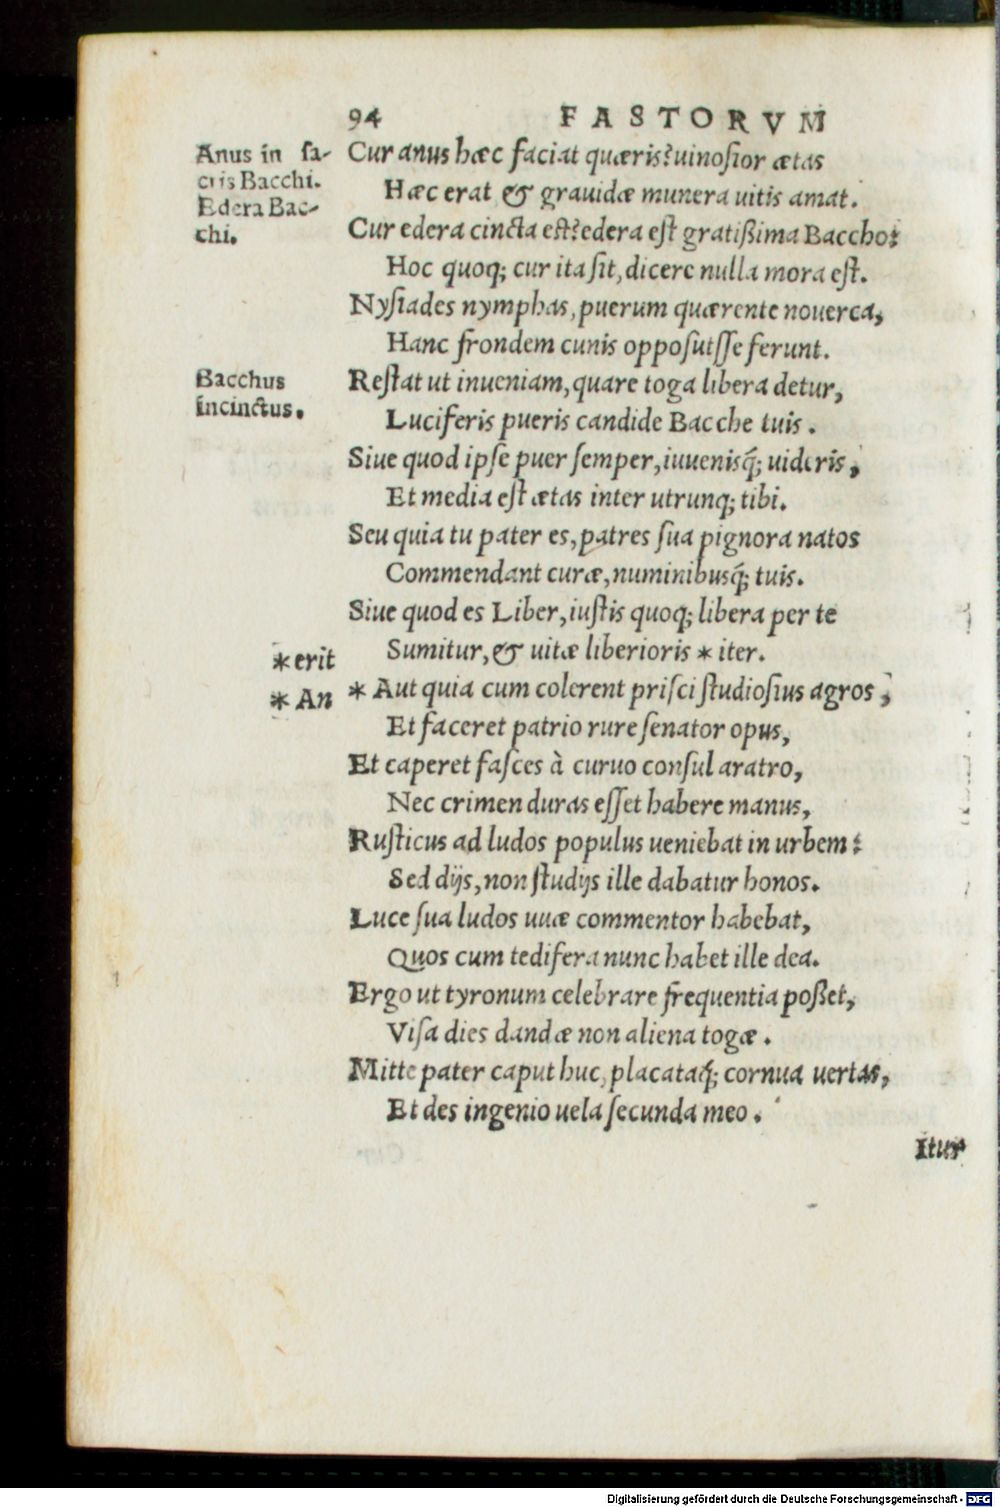 94 FASTORVM
Anus in ſa-
cris Bacchi.
Edera Bac-
chi.
Cur anus hæc faciat quæris? uinoſior ætas
Hæc erat & grauidæ munera uitis amat.
Cur edera cincta eſt? edera eſt gratißima Baccho:
Hoc quoq; cur ita ſit, dicere nulla mora eſt.
Nyſiades nymphas, puerum quærente nouerca,
Hanc frondem cunis oppoſuiſſe ferunt.
Bacchus
incinctus.
Reſtat ut inueniam, quare toga libera detur,
Luciferis pueris candide Bacche tuis.
Siue quod ipſe puer ſemper, iuueniſq́; uideris,
Et media eſt ætas inter utrunq; tibi.
Seu quia tu pater es, patres ſua pignora natos
Commendant curæ, numinibusq́; tuis.
Siue quod es Liber, iuſtis quoq; libera per te
Sumitur, & uitæ liberioris * iter.
* erit
* An
* Aut quia cum colerent priſci ſtudioſius agros,
Et faceret patrio rure ſenator opus,
Et caperet faſces à curuo conſul aratro,
Nec crimen duras eſſet habere manus,
Ruſticus ad ludos populus ueniebat in urbem:
Sed dijs, non ſtudijs ille dabatur honos.
Luce ſua ludos uuæ commentor habebat,
Quos cum tedifera nunc habet ille dea.
Ergo ut tyronum celebrare frequentia poßet,
Viſa dies dandæ non aliena togæ.
Mitte pater caput huc, placataq́; cornua uertas,
Et des ingenio uela ſecunda meo.
Itur
Digitalisierung gefördert durch die Deutsche Forschungsgemeinschaft - DFG